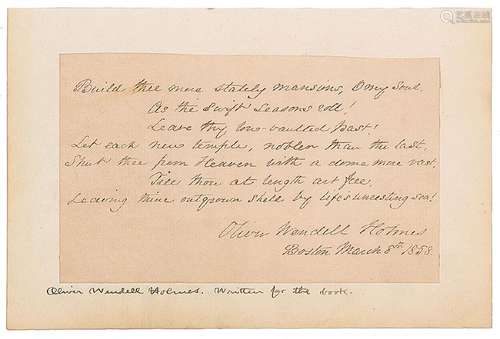 Build thee more stately mansions, O my Soul.
As the swift Seasons roll!
Leave thy low-vaulted past!
Let each new temple, nobler than the last,
Shut thee from Heaven with a dome more vast,
Till thou at length art free,
Leaving thine outgrown shell by life's unresting sea!
Oliver Wendell Holmes
Boston March 8th 1858.
Oliver Wendell Holmes. Written for the book.